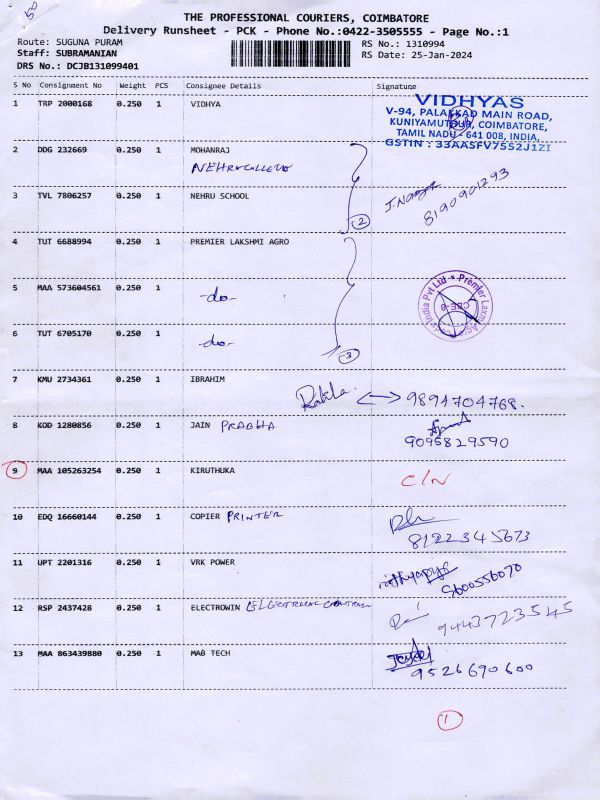 50
THE PROFESSIONAL COURIERS, COIMBATORE
Delivery Runsheet - PCK - Phone No.:0422-3505555 - Page No.:1
Route: SUGUNA PURAM
Staff: SUBRAMANIAN
DRS No.: DCJB131099401
RS No.: 1310994
RS Date: 25-Jan-2024
S No Consignment No Weight PCS Consignee Details Signature
1 TRP 2000168 0.250 1 VIDHYA
VIDHYAS
V-94, PALAKKAD MAIN ROAD,
KUNIYAMUTHUR, COIMBATORE,
TAMIL NADU - 641 008, INDIA,
GSTIN : 33AASFV7552J1ZI
2 DDG 232669 0.250 1 MOHANRAJ
NEHRU COLLEGE
3 TVL 7806257 0.250 1 NEHRU SCHOOL
2
8190901293
4 TUT 6688994 0.250 1 PREMIER LAKSHMI AGRO
5 MAA 573604561 0.250 1 -do-
CBE-8
6 TUT 6705170 0.250 1 -do-
3
7 KMU 2734361 0.250 1 IBRAHIM
9894704768.
8 KOD 1280856 0.250 1 JAIN PRABHA
9095829590
9 MAA 105263254 0.250 1 KIRUTHUKA C/N
10 EDQ 16660144 0.250 1 COPIER PRINTER
8122345673
11 UPT 2201316 0.250 1 VRK POWER
9600556070
12 RSP 2437428 0.250 1 ELECTROWIN
9443723545
13 MAA 863439880 0.250 1 MAB TECH
9526690600
1